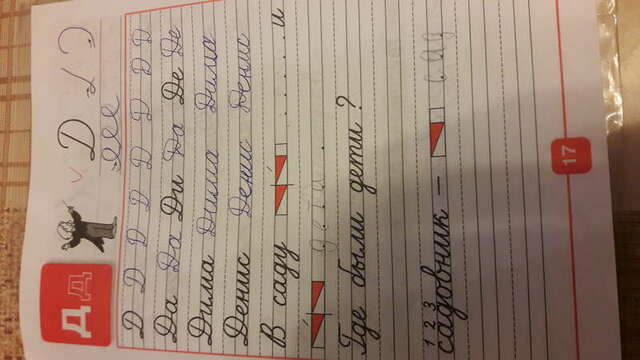 Д Д Д
Д Д Д Д Д Д Д Д Д
Да Да Ди Да Де Де
Дима Дима Дима
Денис Денис Денис
В саду . . . . . . и
.
Где были дети?
1 2 3
садовник – сад
17